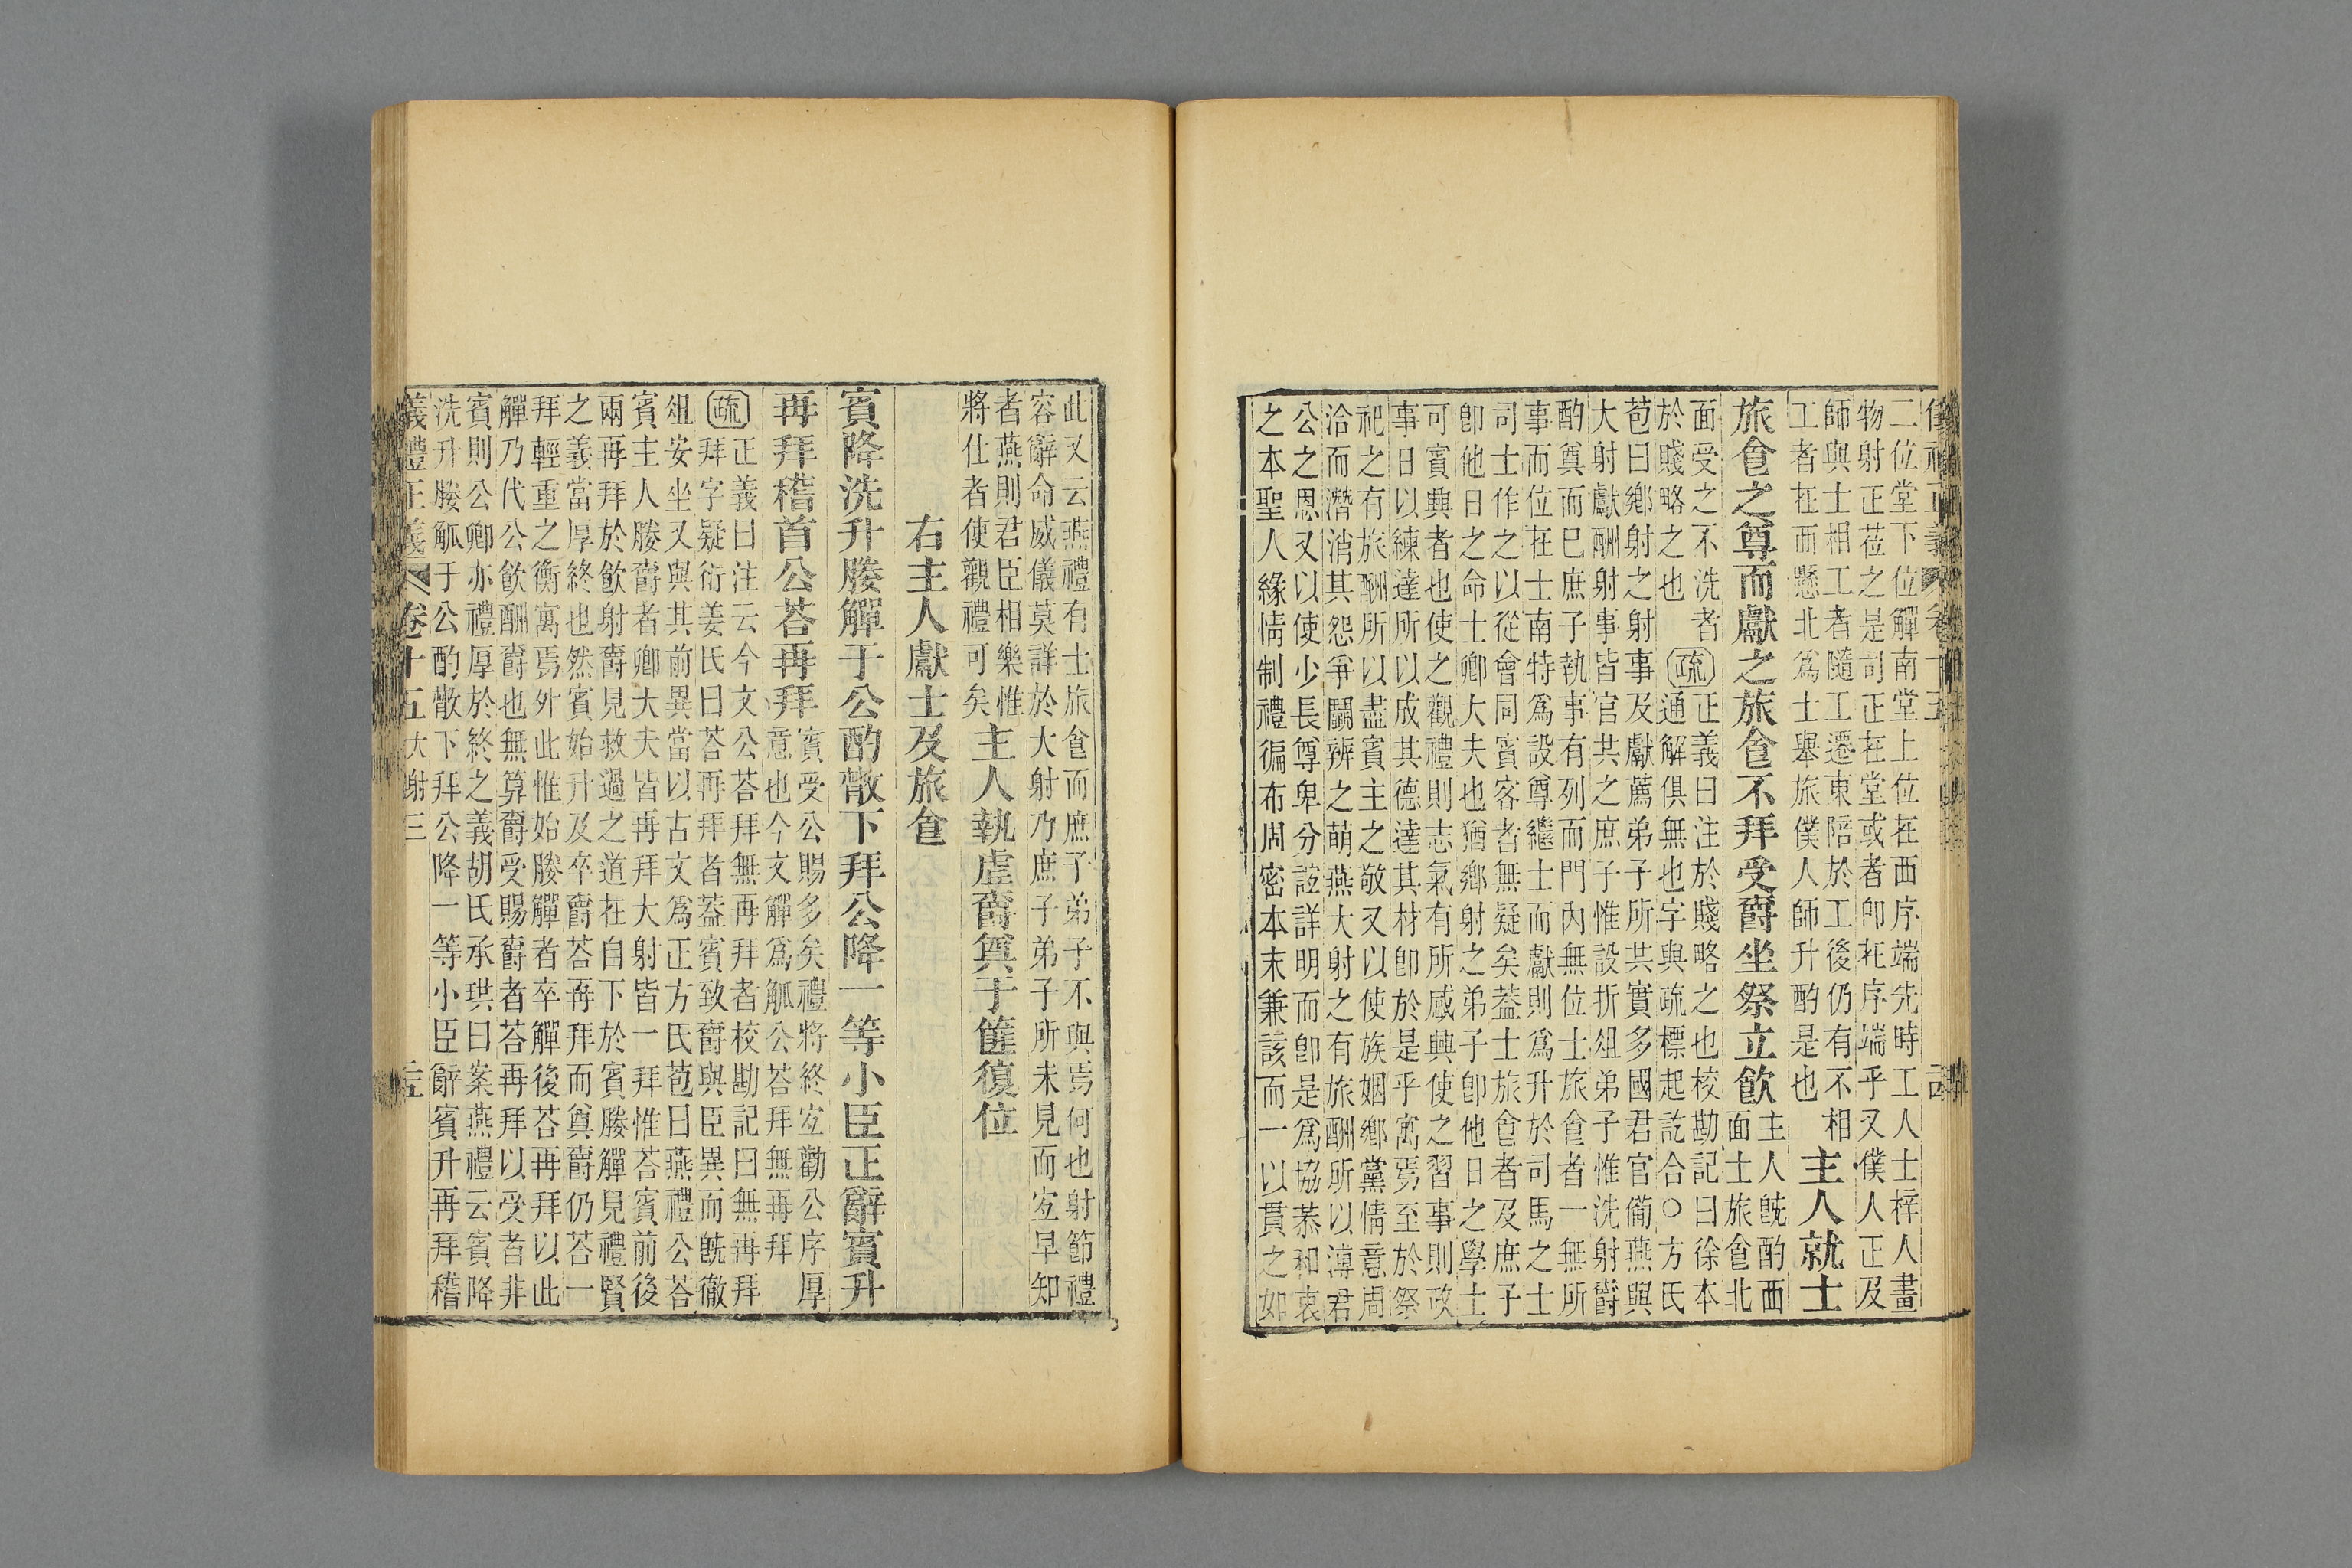 二位堂下位觶南堂上位在西序端先時工人士梓人畫
物射正莅之是司正在堂或者卽在序端乎又僕人正及
師與士相工者隨工遷東陪於工後仍有不相
工者在西懸北爲士舉旅僕人師升酌是也
主人就士
旅食之尊而獻之旅食不拜受爵坐祭立飮
主人既酌西
面士旅食北
面受之不洗者
於賤略之也
疏
正義曰注於賤略之也校勘記曰徐本
通解俱無也字與疏標起訖合○方氏
苞曰鄉射之射事及獻薦弟子所共實多國君官備燕與
大射獻酬射事皆官共之庶子惟設折俎弟子惟洗射爵
酌奠而巳庶子執事有列而門內無位士旅食者一無所
事而位在士南特爲設尊繼士而獻則爲升於司馬之士
司士作之以從會同賓客者無疑矣葢士旅食者及庶子
卽他日之命士卿大夫也猶鄉射之弟子卽他日之學士
可賓興者也使之觀禮則志氣有所感興使之習事則政
事日以練達所以成其德達其材卽於是乎寓焉至於祭
祀之有旅酬所以盡賓主之敬又以使族姻鄉黨情意周
洽而潛消其怨爭鬬辨之萌燕大射之有旅酬所以溥君
公之恩又以使少長尊卑分誼詳明而卽是爲協恭和衷
之本聖人緣情制禮徧布周密本末兼該而一以貫之如
此又云燕禮有士旅食而庶子弟子不與焉何也射節禮
容辭命威儀莫詳於大射乃庶子弟子所未見而宜早知
者燕則君臣相樂惟
將仕者使觀禮可矣
主人執虛爵奠于篚復位
右主人獻士及旅食
賓降洗升媵觶于公酌散下拜公降一等小臣正辭賓升
再拜稽首公荅再拜
賓受公賜多矣禮將終宜勸公序厚
意也今文觶爲觚公荅拜無再拜
疏
正義曰注云今文公荅拜無再拜者校勘記曰無再拜
拜字疑衍姜氏曰荅再拜者葢賓致爵與臣異而既徹
俎安坐又與其前異當以古文爲正方氏苞曰燕禮公荅
賓主人媵爵者卿大夫皆再拜大射皆一拜惟荅賓前後
兩再拜於飮射爵見救過之道在自下於賓媵觶見禮賢
之義當厚終也然賓始升及卒爵荅再拜而奠爵仍荅一
拜輕重之衡寓焉外此惟始媵觶者卒觶後荅再拜以此
觶乃代公飮酬爵也無算爵受賜爵者荅再拜以受者非
賓則公卿亦禮厚於終之義胡氏承珙曰案燕禮云賓降
洗升媵觚于公酌散下拜公降一等小臣辭賓升再拜稽
義禮正義卷十五大射三